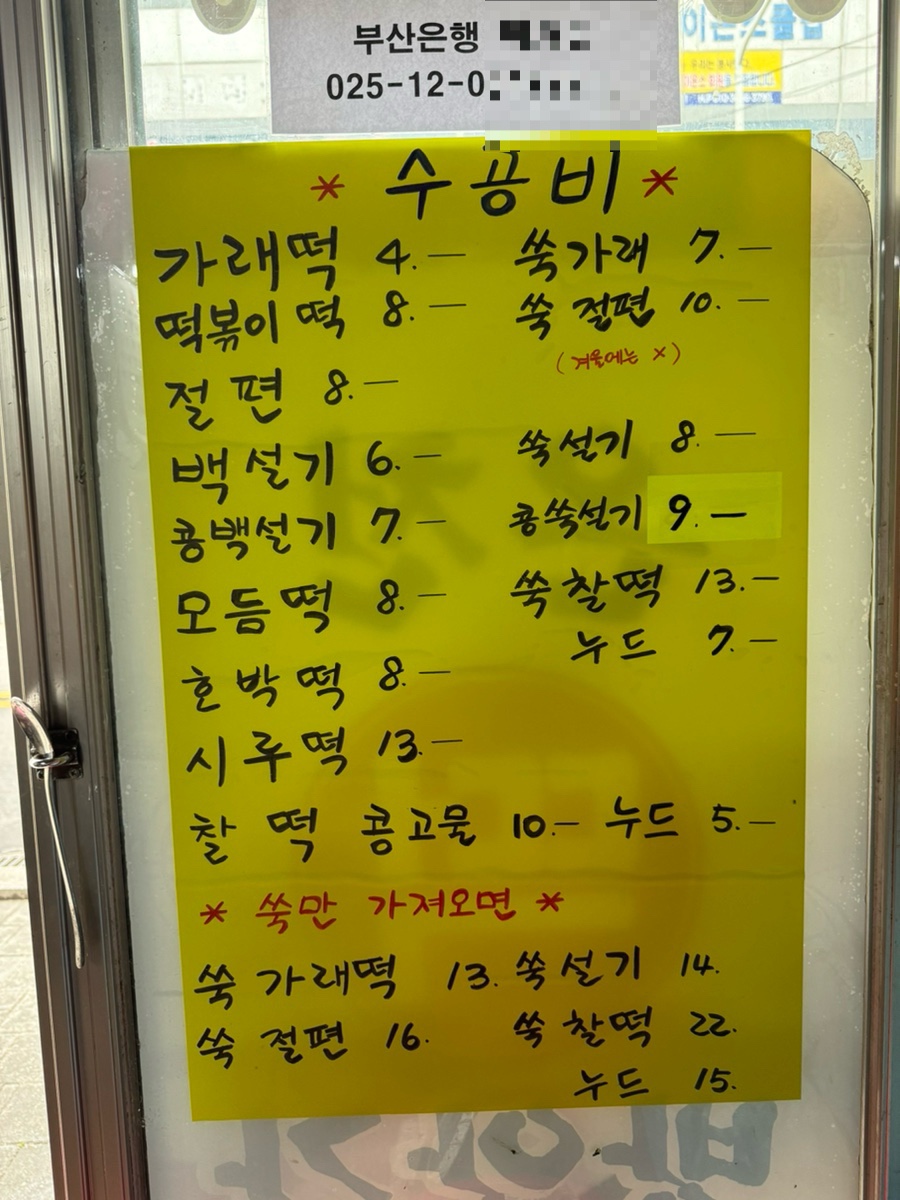 부산은행
025-12-0
* 수공비 *
가래떡 4.— 쑥가래 7.—
떡볶이 떡 8.— 쑥 절편 10.—
(겨울에는 x)
절편 8.—
백설기 6.— 쑥설기 8.—
콩백설기 7.— 콩쑥설기 9.—
모듬떡 8.— 쑥찰떡 13.—
누드 7.—
호박떡 8.—
시루떡 13.—
찰떡 콩고물 10.— 누드 5.—
* 쑥만 가져오면 *
쑥 가래떡 13. 쑥설기 14.
쑥 절편 16. 쑥찰떡 22.
누드 15.